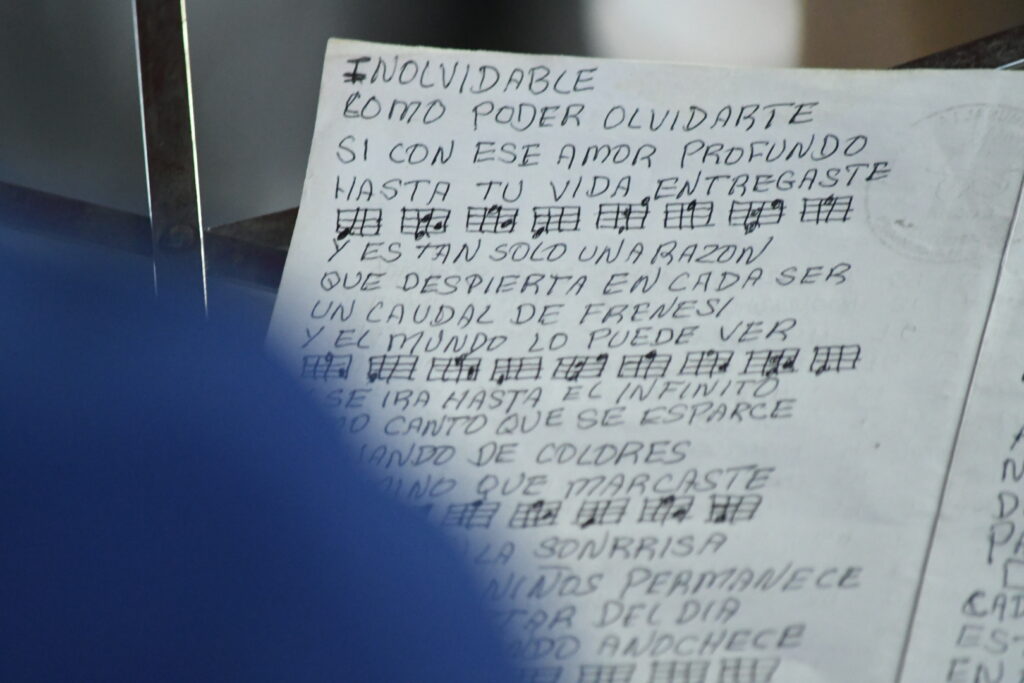 INOLVIDABLE
COMO PODER OLVIDARTE
SI CON ESE AMOR PROFUNDO
HASTA TU VIDA ENTREGASTE
Y ES TAN SOLO UNA RAZON
QUE DESPIERTA EN CADA SER
UN CAUDAL DE FRENESI
Y EL MUNDO LO PUEDE VER
SE IRA HASTA EL INFINITO
CANTO QUE SE ESPARCE
DE COLORES
QUE MARCASTE
LA SONRRISA
NIÑOS PERMANECE
DEL DIA
ANOCHECE